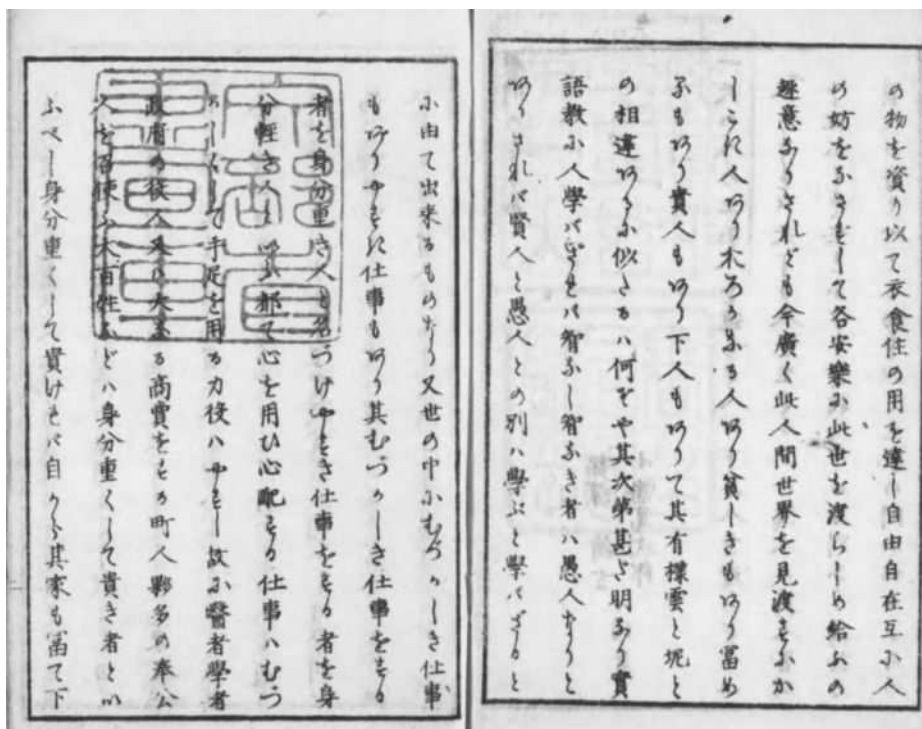 の物を資り以て衣食住の用を達し自由自在互に人
の妨をなさずして各安樂に此世を渡らしめ給ふの
趣意なりされども今廣く此人間世界を見渡すにか
しこき人ありおろかなる人あり貧しきもあり冨め
るもあり貴人もあり下人もありて其有樣雲と坭と
の相違あるに似たるハ何ぞや其次第甚だ明なり實
語教に人學バざれバ智なし智なき者ハ愚人なりと
ありされバ賢人と愚人との別ハ學ぶと學バざると
に由て出來るものなり又世の中にむづかしき仕事
もありやすき仕事もあり其むづかしき仕事をする
者を身分重き人と名づけやすき仕事をする者を身
分輕き人といふ都て心を用ひ心配する仕事ハむづ
かしくして手足を用る力役ハやすし故に醫者學者
政府の役人又ハ大なる商賣をする町人夥多の奉公
人を召使ふ大百姓などハ身分重くして貴き者とい
ふべし身分重くして貴けれバ自から其家も冨て下